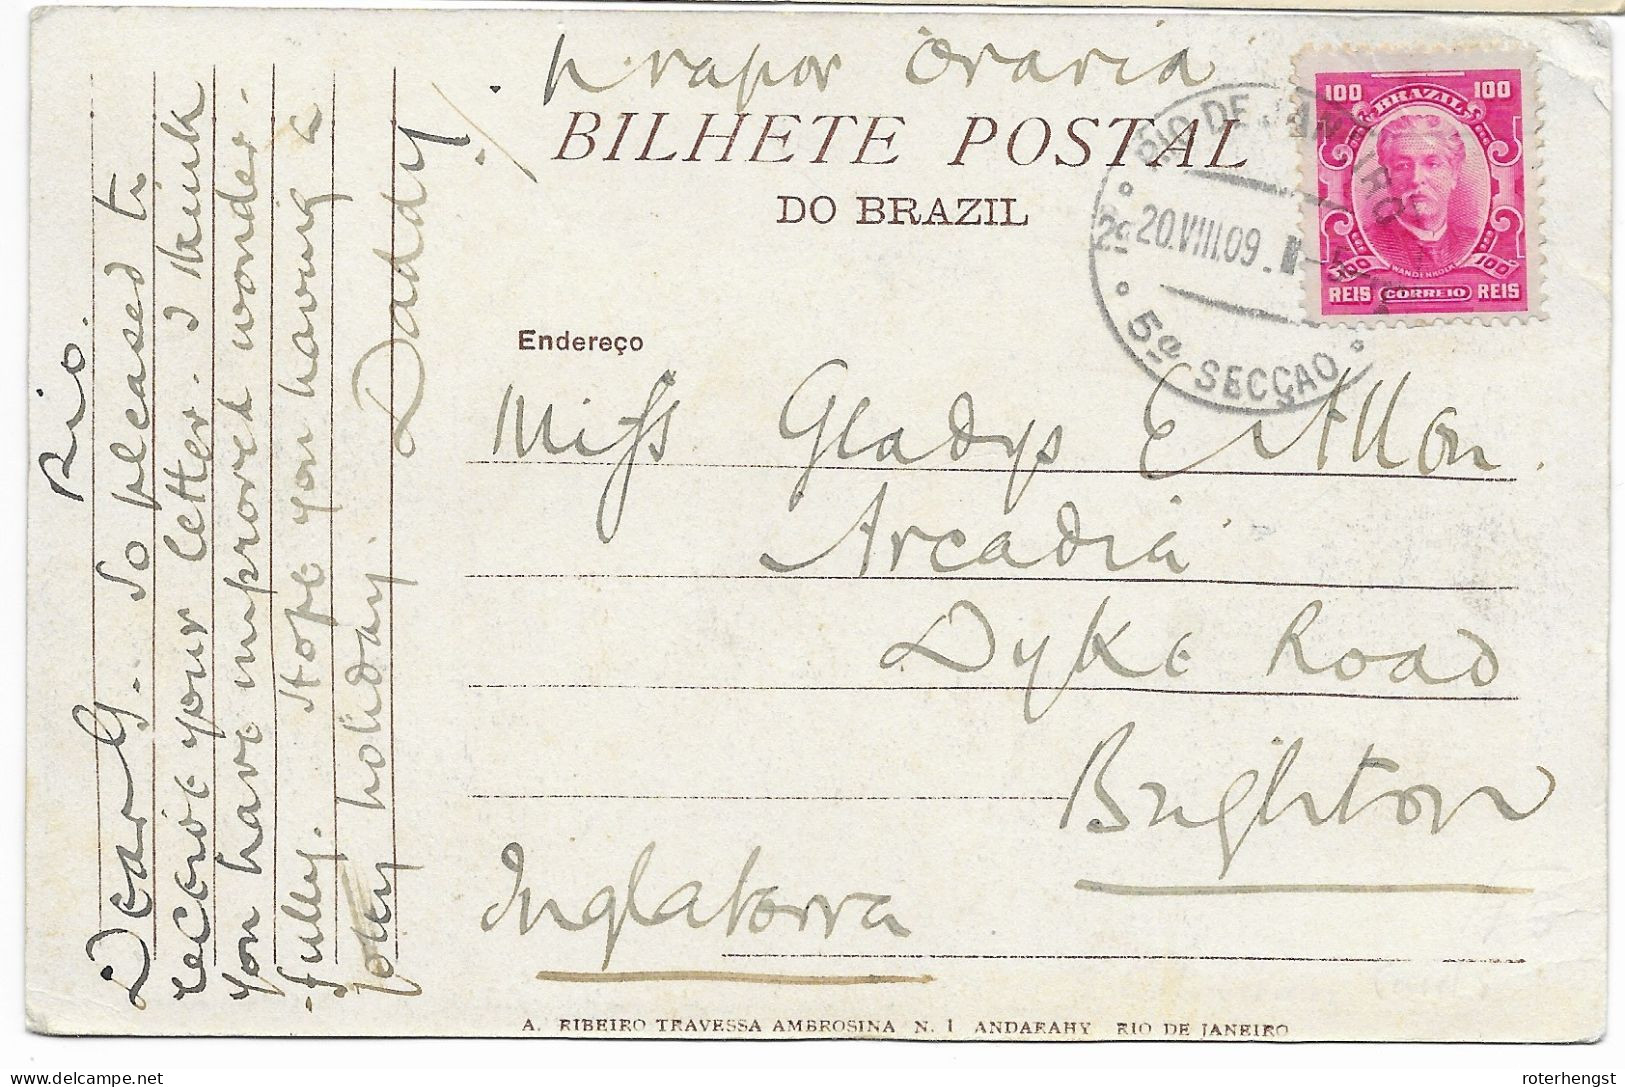 p. vapor Oravia
BILHETE POSTAL
DO BRAZIL
RIO DE JANEIRO
2ª 20.VIII.09
5ª SECÇAO
100 100
BRAZIL
WANDENKOLK
100 100
REIS CORREIO REIS
Endereço
Miss Gladys
Arcadia
Dyke Road
Brighton
Inglaterra
Rio.
Dear G. So pleased to
receive your letter. I think
you have improved wonder-
fully. Hope you having a
jolly holiday. Daddy
A. RIBEIRO TRAVESSA AMBROSINA N. 1 ANDARAHY RIO DE JANEIRO
delcampe.net
roterhengst